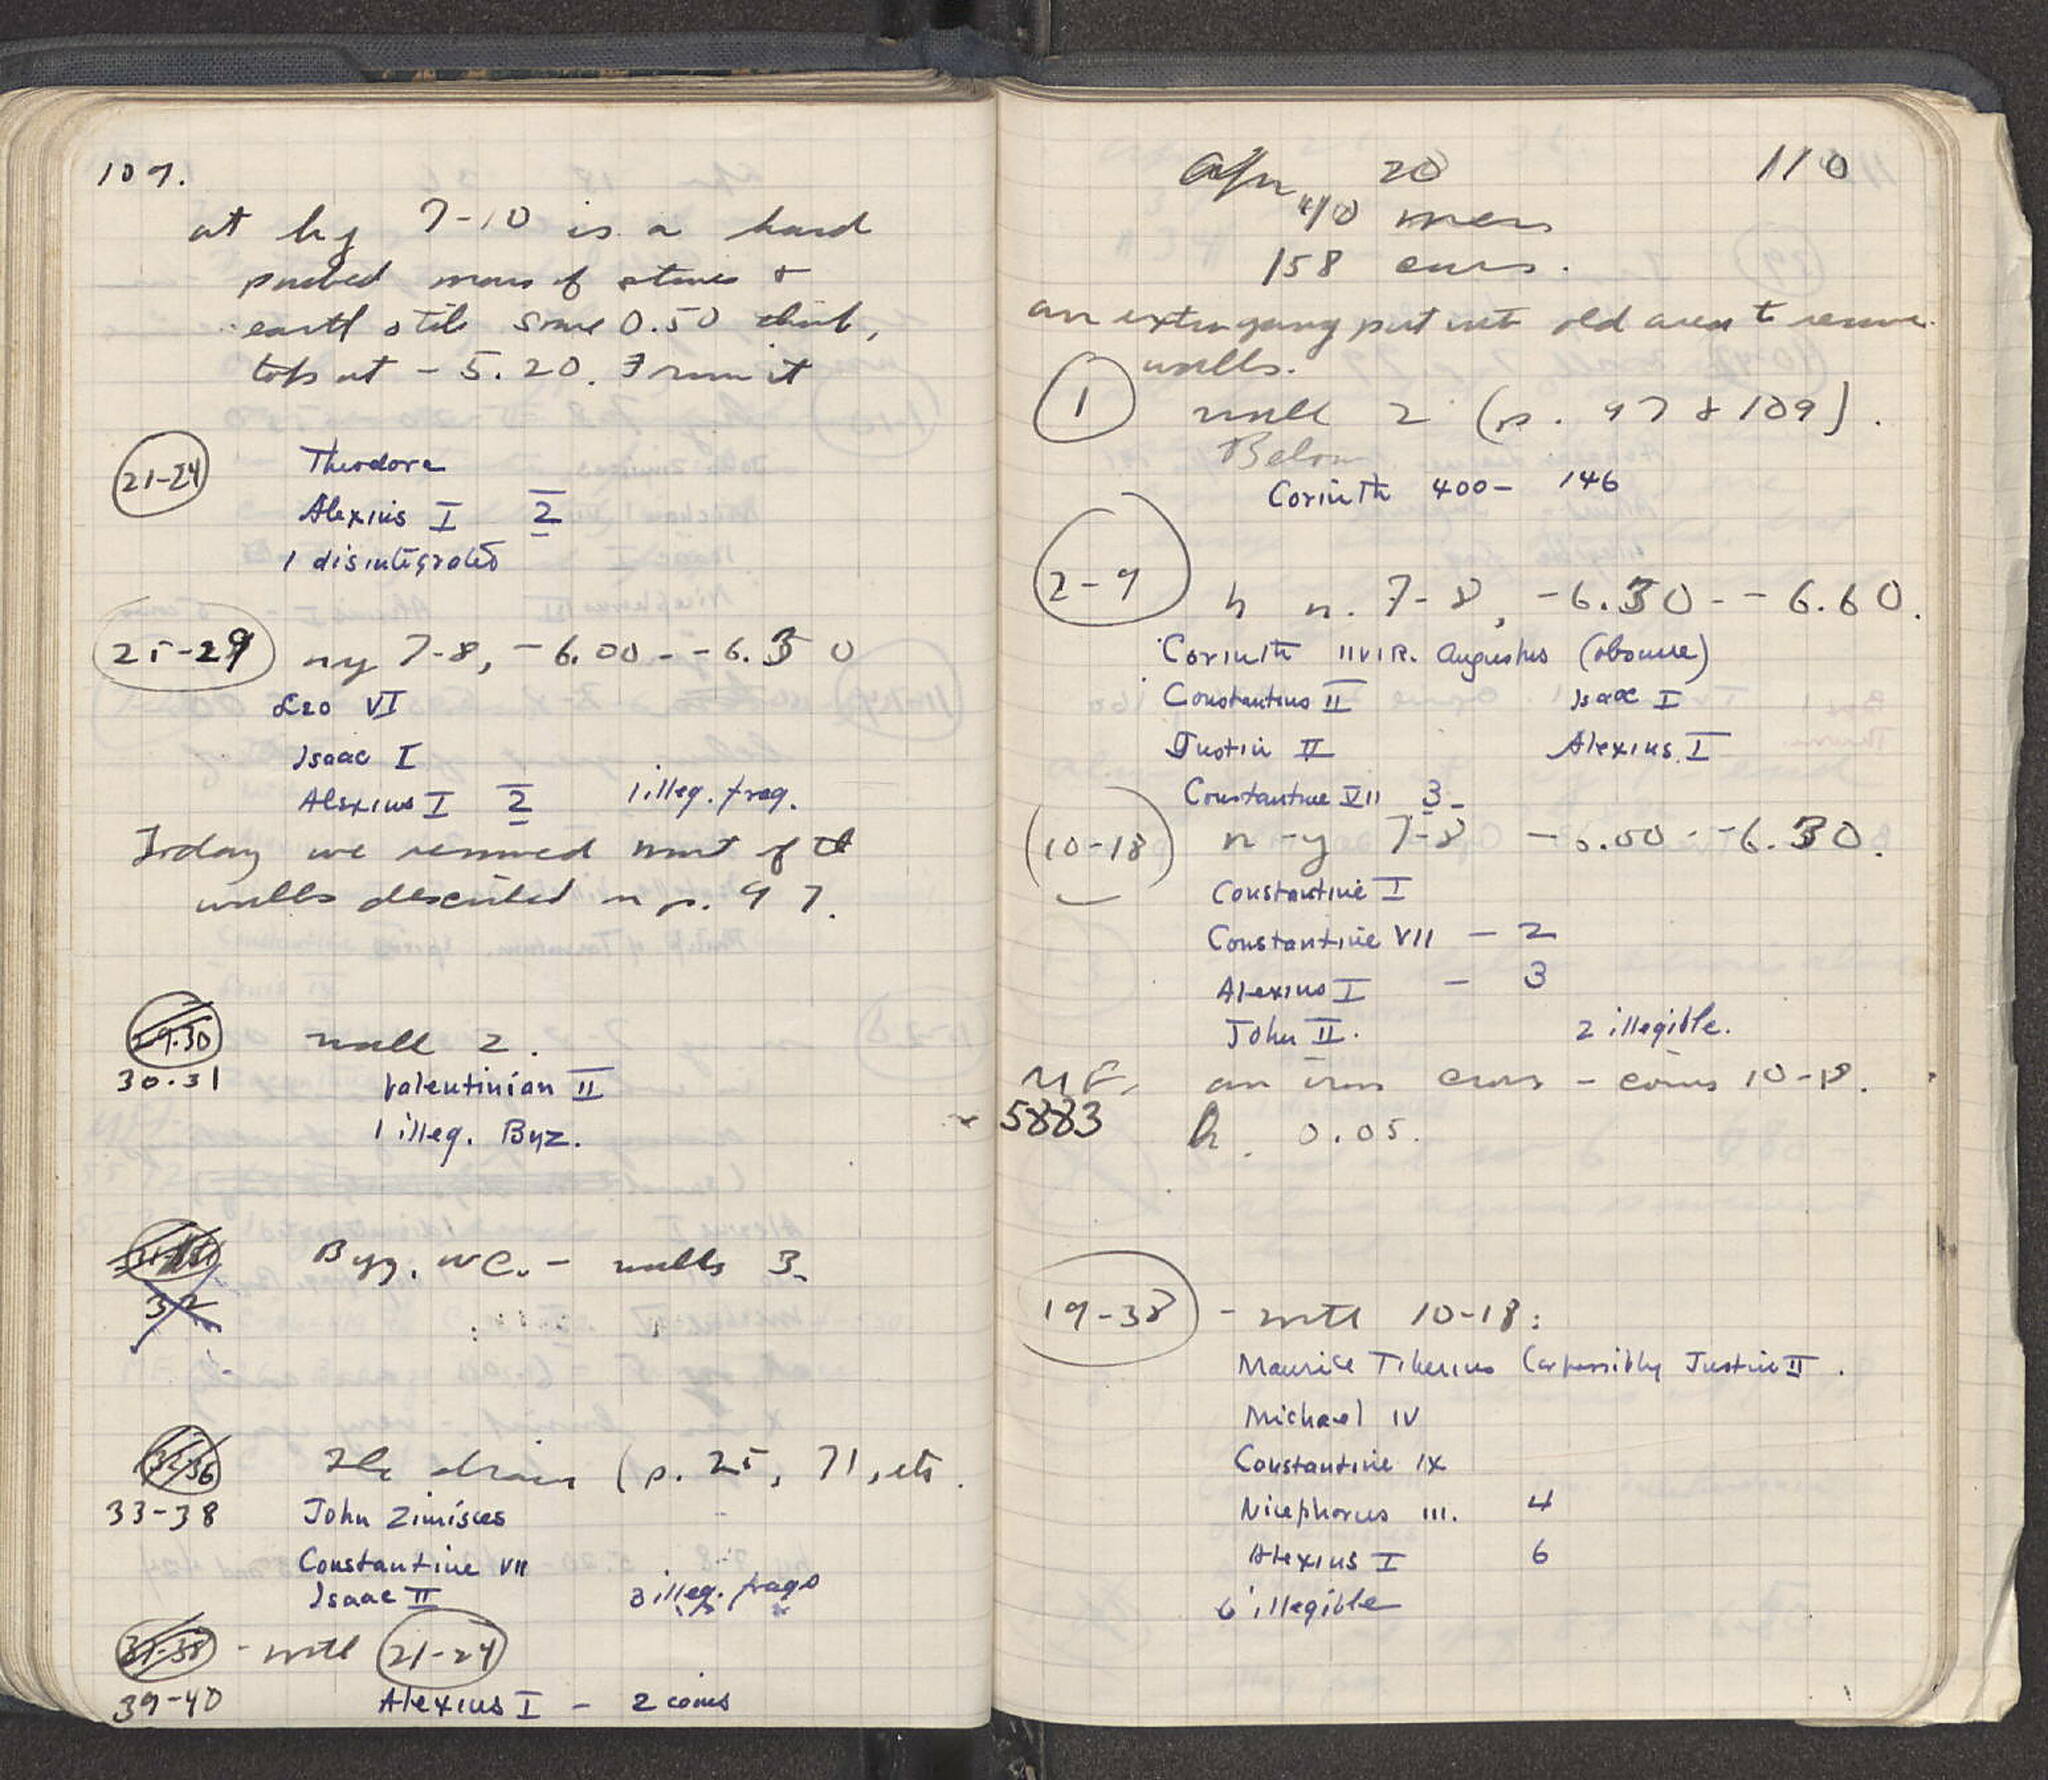 109.
at hy 7-10 is a hard
packed mass of stones &
earth & tile some 0.50 thick,
tops at - 5.20. From it
21-24 Theodora
Alexius I 2
1 disintegrated
25-29 ny 7-8, -6.00 - -6.30
Leo VI
Isaac I
Alexius I 2 1 illeg. frag.
Today we removed most of the
walls described on p. 97.
29-30 wall 2.
30-31 Valentinian II
1 illeg. Byz.
Byz. - walls 3.
32
The drain (p. 25, 71, etc.
33-38 John Zimisces
Constantine VII
Isaac II 3 illeg. frags
- with 21-24
39-40 Alexius I - 2 coins
Apr 20 110
40 men
158 cars.
an extra gang put into old area to remove
walls.
1 wall 2 (p. 97 & 109).
Below
Corinth 400- 146
2-9 h n. 7-8, -6.30 - -6.60.
Corinth IIVIR. Augustus (obscure)
Constantius II Isaac I
Justin II Alexius I
Constantine VII 3
10-18 n-y 7-8 -6.00 - -6.30.
Constantine I
Constantine VII - 2
Alexius I - 3
John II. 2 illegible.
MF. an iron cross - coins 10-18.
5883 h. 0.05.
19-38 - with 10-18:
Maurice Tiberius (or possibly Justin II.
Michael IV
Constantine IX
Nicephorus III. 4
Alexius I 6
6 illegible